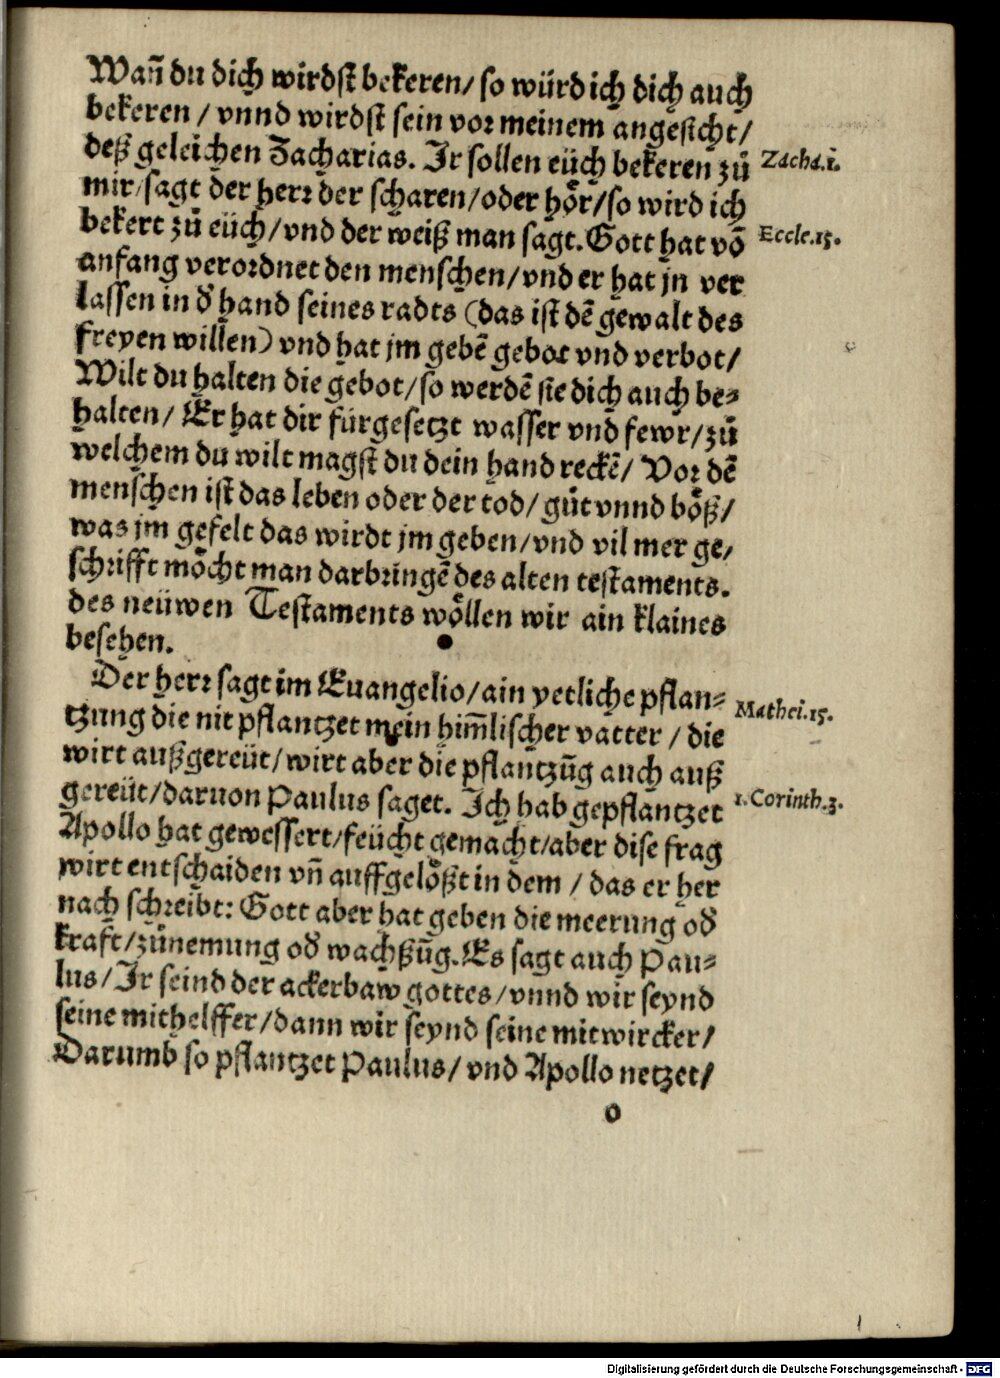 Wañ du dich wirdst bekeren/ so würd ich dich auch
bekeren / vnnd wirdst sein vor meinem angesicht/
deß geleichen Zacharias. Ir sollen eüch bekeren zů Zacha.i.
mir/sagt der herr der scharen/oder hoͤr/so wird ich
bekert zů eüch/vnd der weiß man sagt. Gott hat võ Eccle.15.
anfang verordnet den menschen/vnd er hat jn ver
lassen in đ hand seines radts (das ist dẽ gewalt des
freyen willen) vnd hat jm gebẽ gebot vnd verbot/
Wilt du halten die gebot/so werdẽ sie dich auch be-
halten/ Er hat dir fürgesetzt wasser vnd fewr/zů
welchem du wilt magst du dein hand reckẽ/ Vor dẽ
menschen ist das leben oder der tod/ gůt vnnd boͤß/
was jm gefelt das wirdt jm geben/vnd vil mer ge/
schrifft moͤcht man darbringẽ des alten testaments.
des neüwen Testaments woͤllen wir ain klaines
besehen.
Der herr sagt im Euangelio/ain yetliche pflan-
tzung die nit pflantzet mein him̃lischer vatter / die Mathei.15.
wirt außgereüt/wirt aber die pflantzũg auch auß
gereüt/daruon Paulus saget. Ich hab gepflantzet 1.Corinth.3.
Apollo hat gewessert/feücht gemacht/aber dise frag
wirt entschaiden vñ auffgeloͤßt in dem / das er her
nach schreibt: Gott aber hat geben die meerung ođ
kraft/zůnemung ođ wachßũg. Es sagt auch Pau-
lus/ Ir seind der ackerbaw gottes/vnnd wir seynd
seine mithelffer/dann wir seynd seine mitwircker/
Darumb so pflantzet Paulus/ vnd Apollo netzet/
o
Digitalisierung gefördert durch die Deutsche Forschungsgemeinschaft - DFG